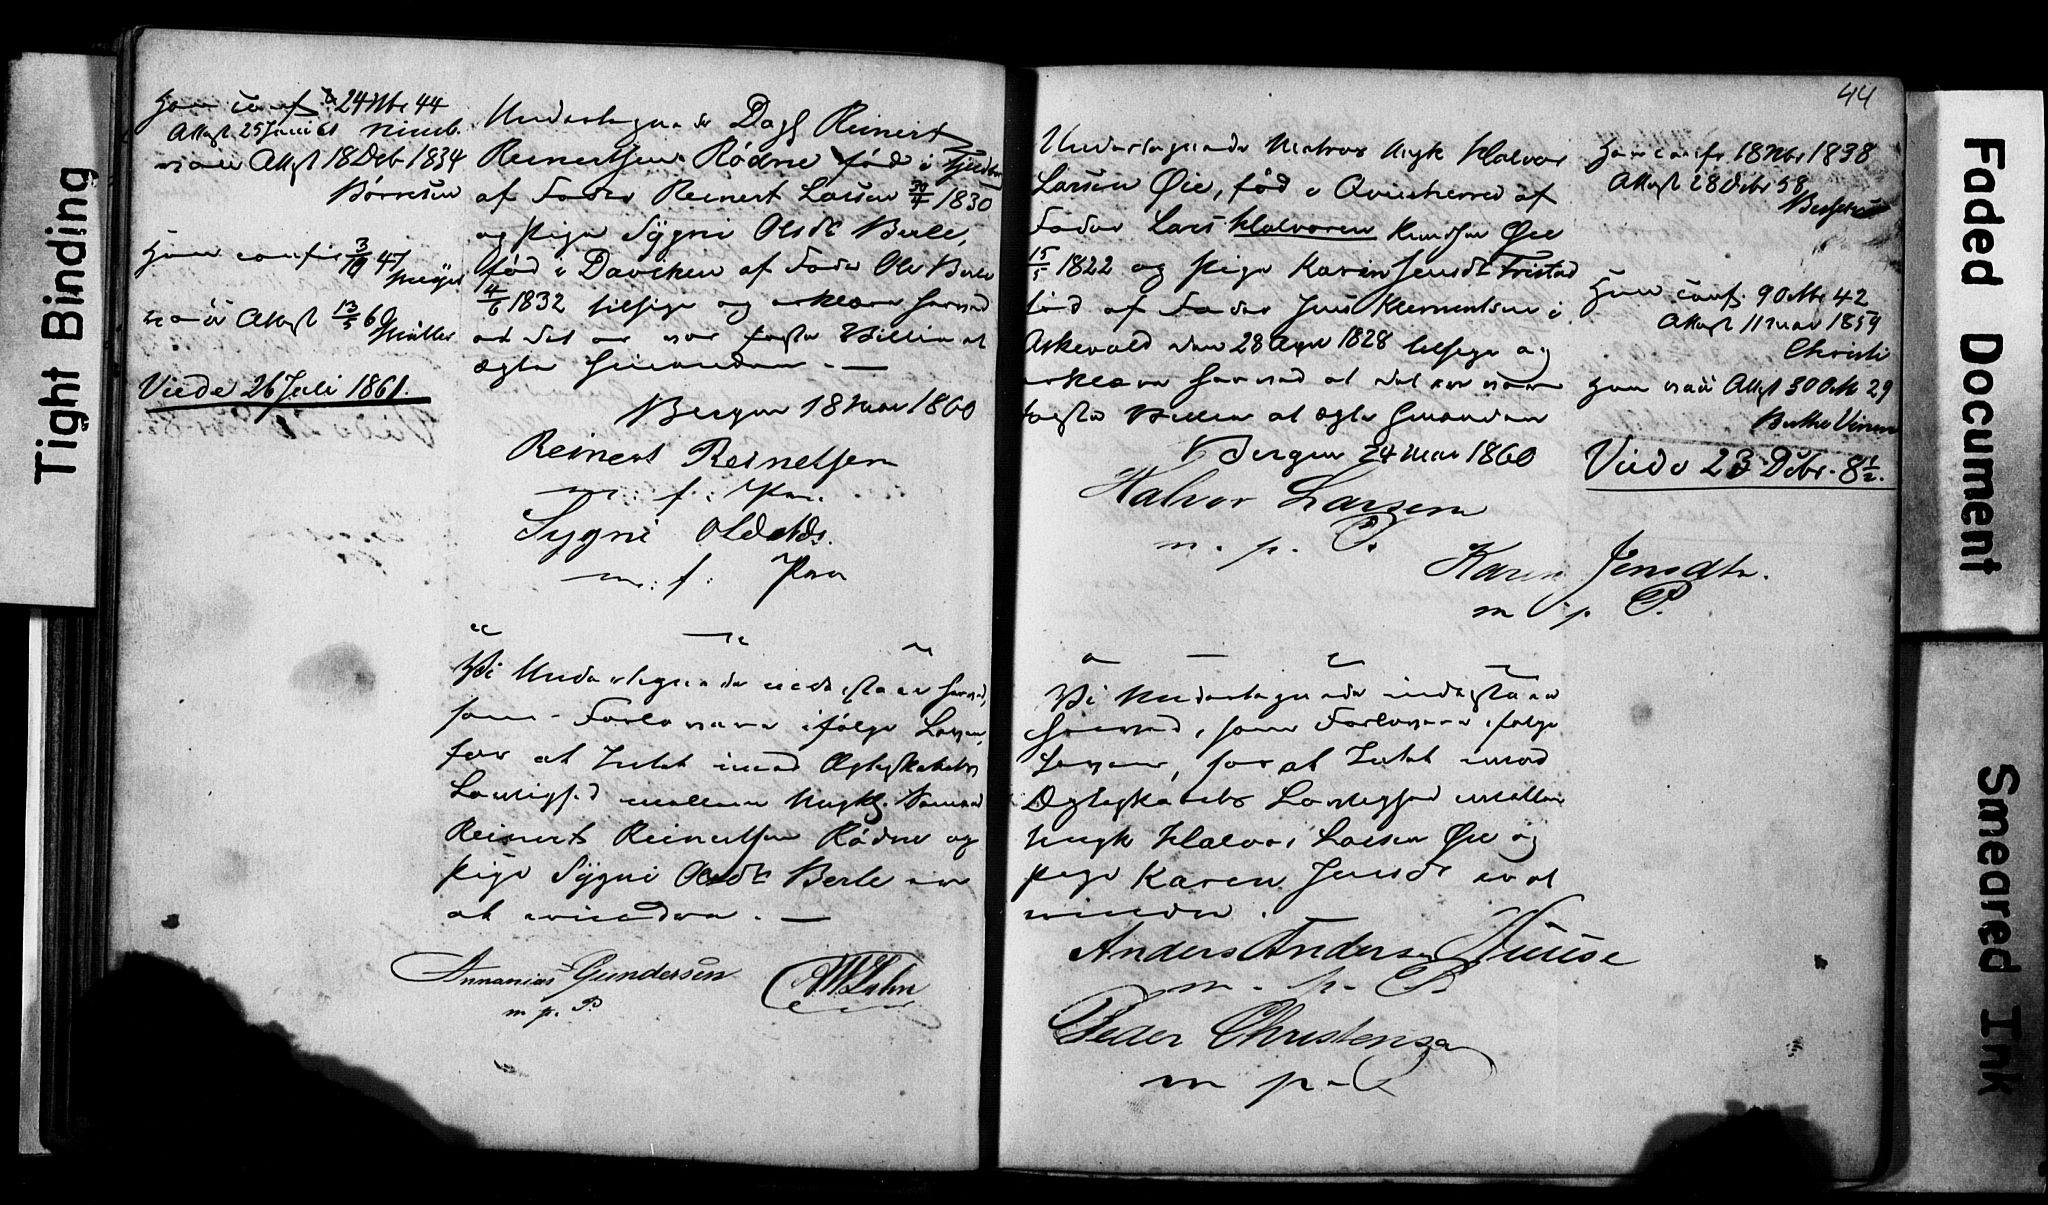 Tight Binding
Han conf. 24 Nbr 44
Attest 25 Juni 61
vacc Attest 18 Deb 1834
Børresen
Hun confir 3/10 47
Meyer
vacc Attest 13/5 60
Møller
Viede 26 Juli 1861.
Undertegnede Dagk Reinert
Reinertsen Rødne fød i
af Fader Reinert Larsen 1830
og Pige Sygni Olsdt Berle,
fød i Davicken af Fader Ole Berle
4/6 1832 tilstige og erklære herved
at det er vor faste Villie at
ægte hinanden. —
Bergen 18 Mai 1860
Reinert Reinetsen
m: f: Pen.
Sygni Oldatds.
m: f: Pen
Vi Undertegnede indestaae herved,
som Forlovere ifølge Loven,
for at Intet imod Ægteskabets
Lovlighed mellem Ungk.
Reinert Reinertsen Rødne og
Pige Sygni Olsdt Berle er
at erindra. —
Annanias Gundersen
m. p. P.
44
Undertegnede Matros Ungk Halvor
Larsen Øie, fød i Qvinherred af
Fader Lars Halvorsen Knudsen Øie
15/5 1822 og Pige Karen Jensdt Tvistad
fød af Fader Jens Klementsen i
Askevold den 28 Apr 1828 tilstige og
erklære herved at det er vor
faste Villie at ægte hinanden
Bergen 24 Mai 1860
Halvor Larsen
m. p. P.
Karen Jensdtr.
m p P.
Vi Undertegnede indestaae
herved, som Forlovere ifølge
Loven, for at Intet imod
Ægteskabets Lovlighed mellem
Ungk Halvor Larsen Øie og
Pige Karen Jensdt er at
erindre.
Anders Andersen
m. p. P.
Peder Christensen
m p.
Han confr 18 Nbr 1838
Attest 28 Debr 58
Hun conf. 9 Octbr 42
Attest 11 Mar 1859
Christi
Hun vacc Attest 30 Oct 29
Viede 23 Debr. 8½.
Faded Document
Smeared Ink